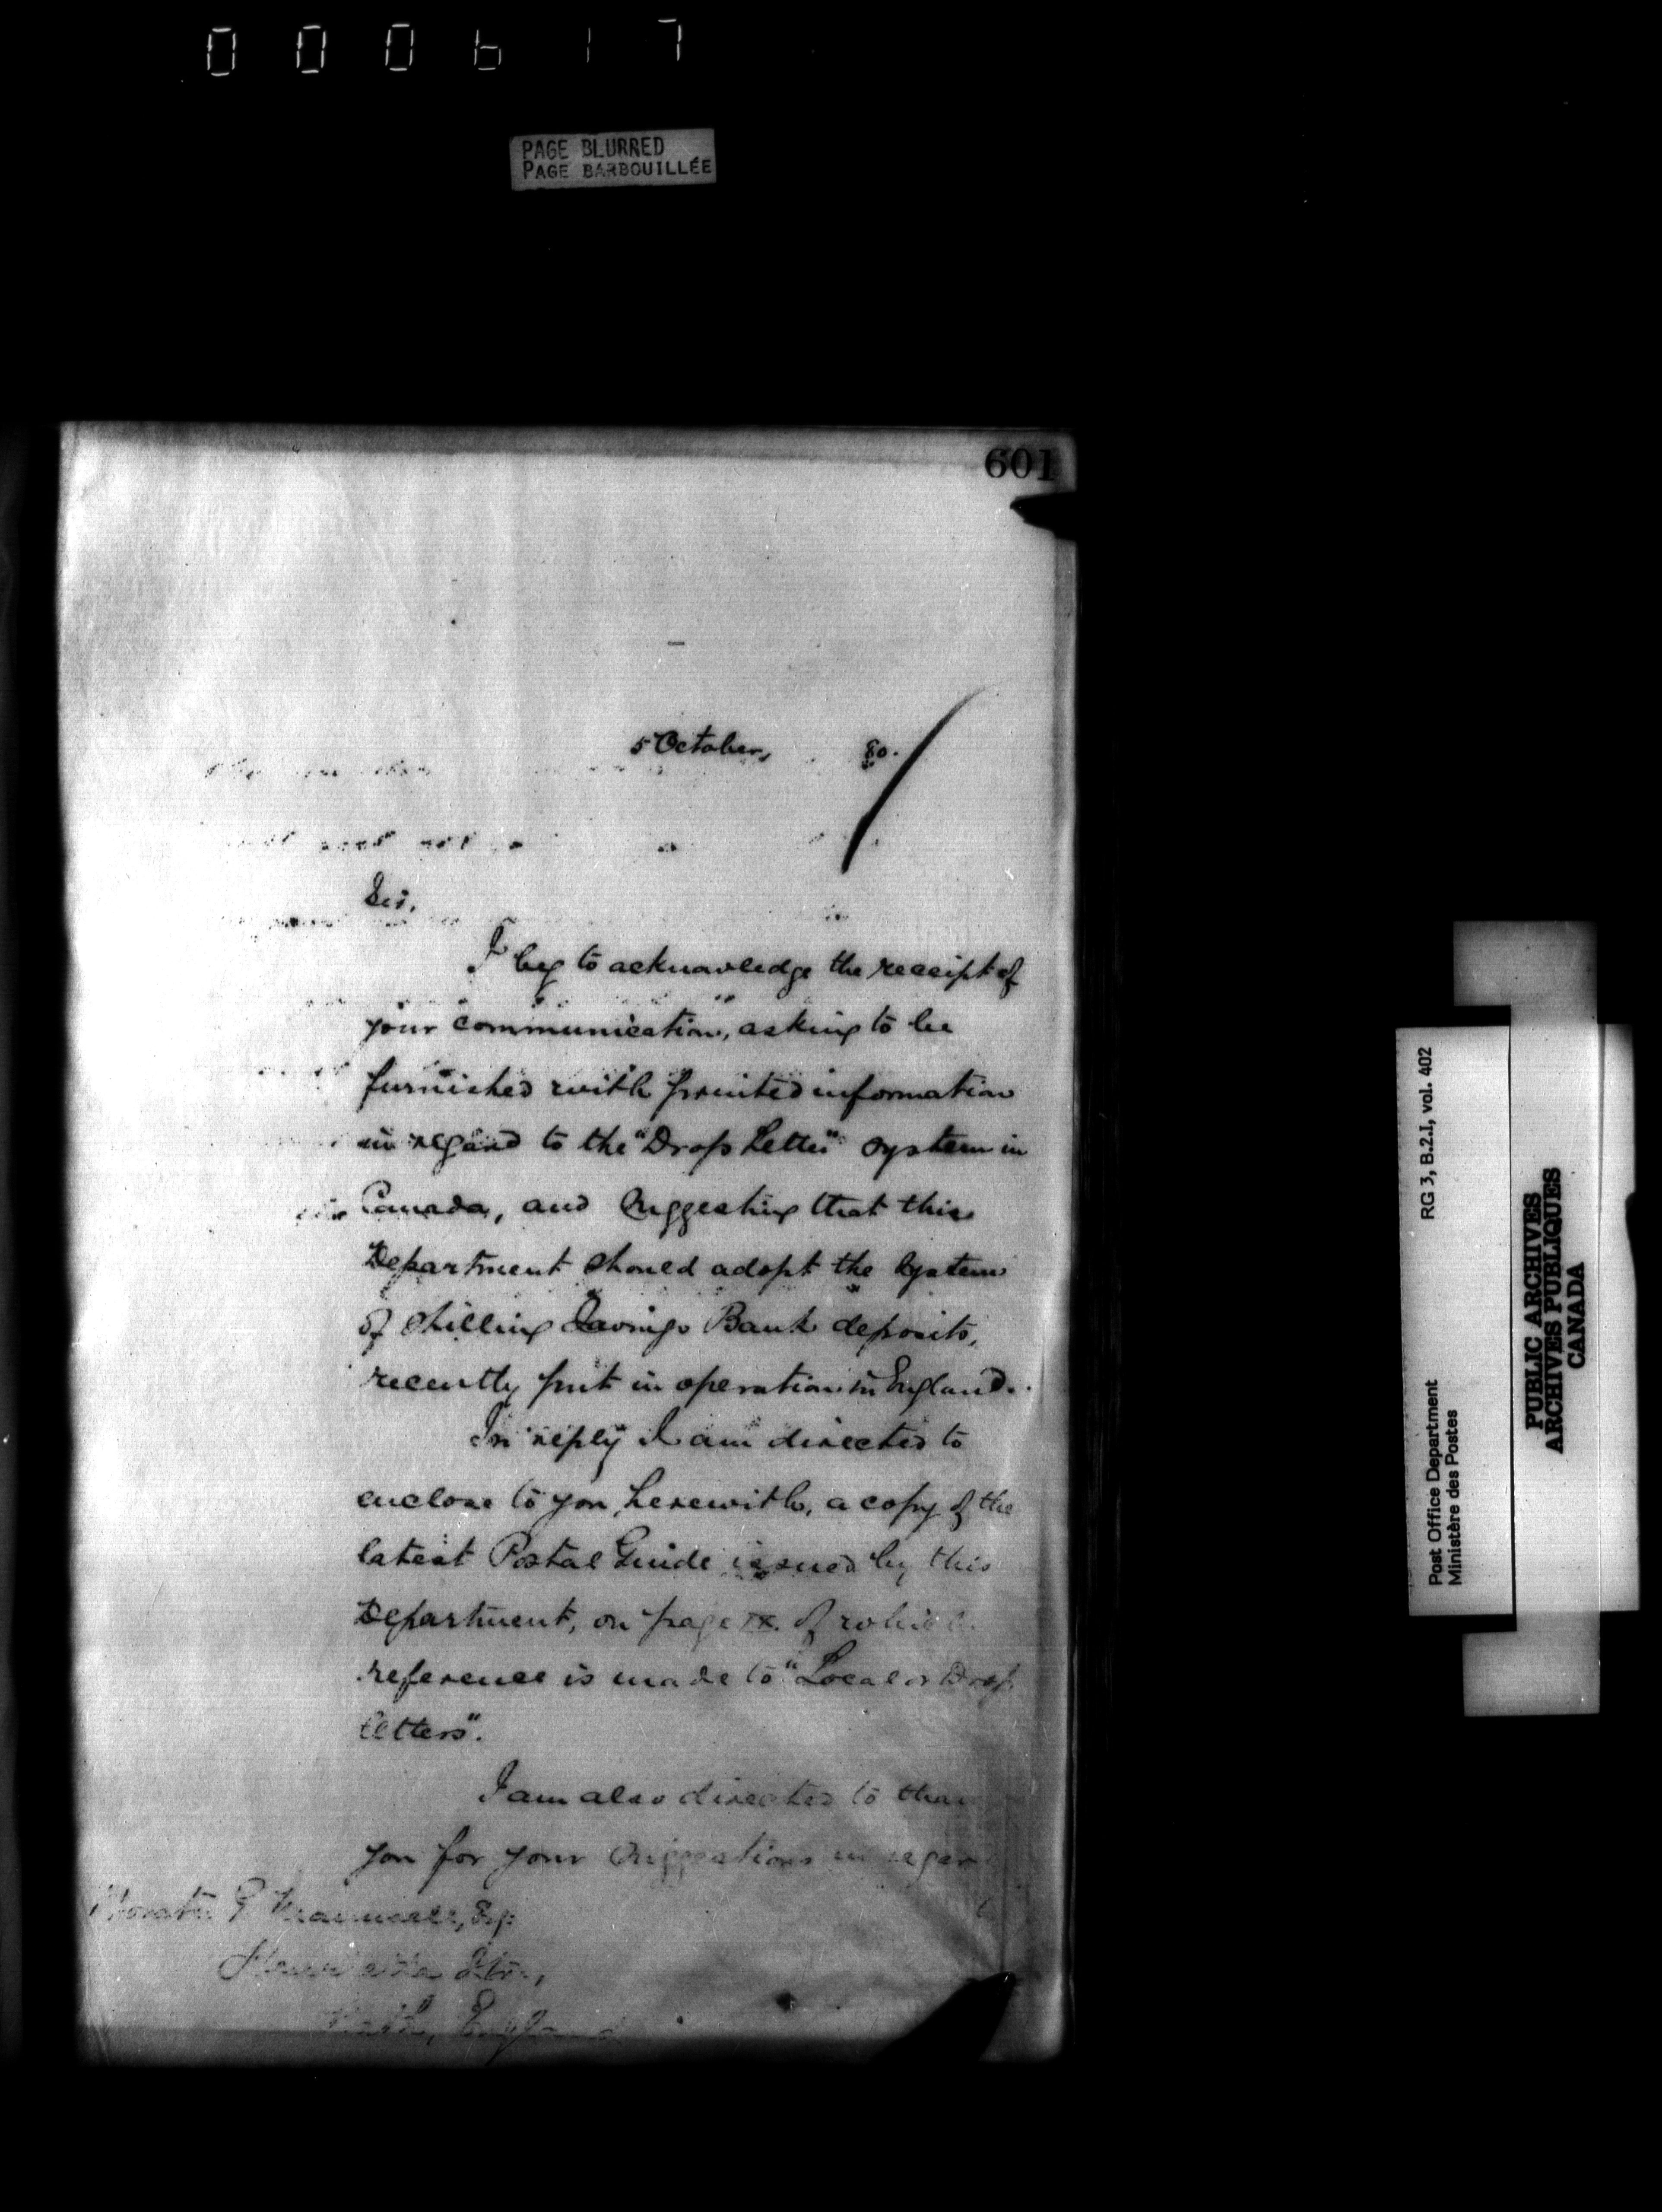 000617
PAGE BLURRED
PAGE BARBOUILLÉE
601
5 October, 80.
Sir,
I beg to acknowledge the receipt of
your communication, asking to be
furnished with printed information
in regard to the "Drop Letter" system in
Canada, and suggesting that this
Department should adopt the system
of shilling Savings Bank deposits,
recently put in operation in England.
In reply I am directed to
enclose to you, herewith, a copy of the
latest Postal Guide issued by this
Department, on page IX. of which
reference is made to "Local or Drop
letters".
I am also directed to than
you for your suggestions in regar
Esq:
England
RG 3, B.2.I, vol. 402
Post Office Department
Ministère des Postes
PUBLIC ARCHIVES
ARCHIVES PUBLIQUES
CANADA